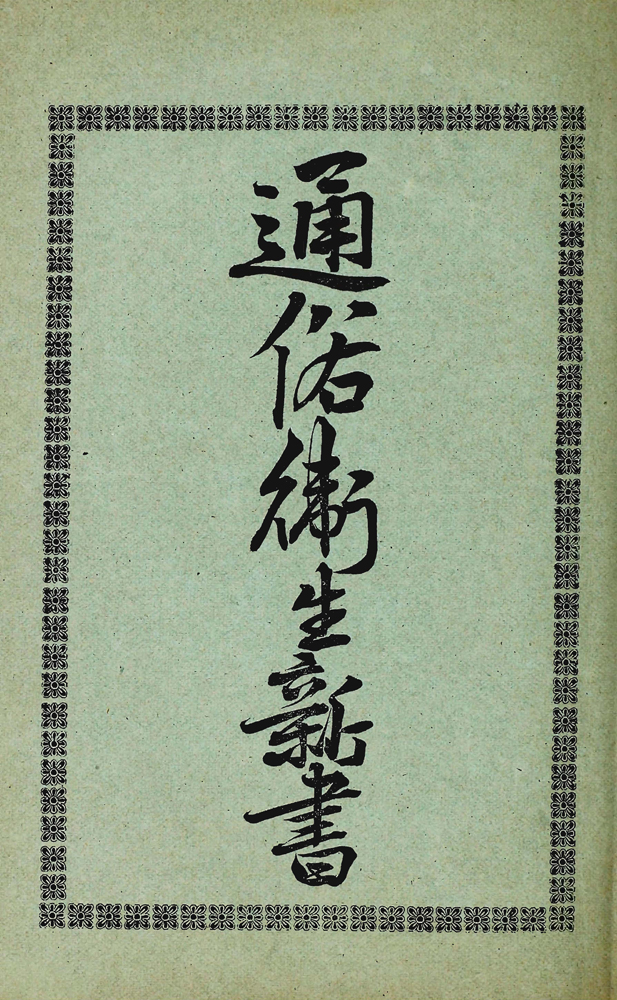 通俗衛生新書